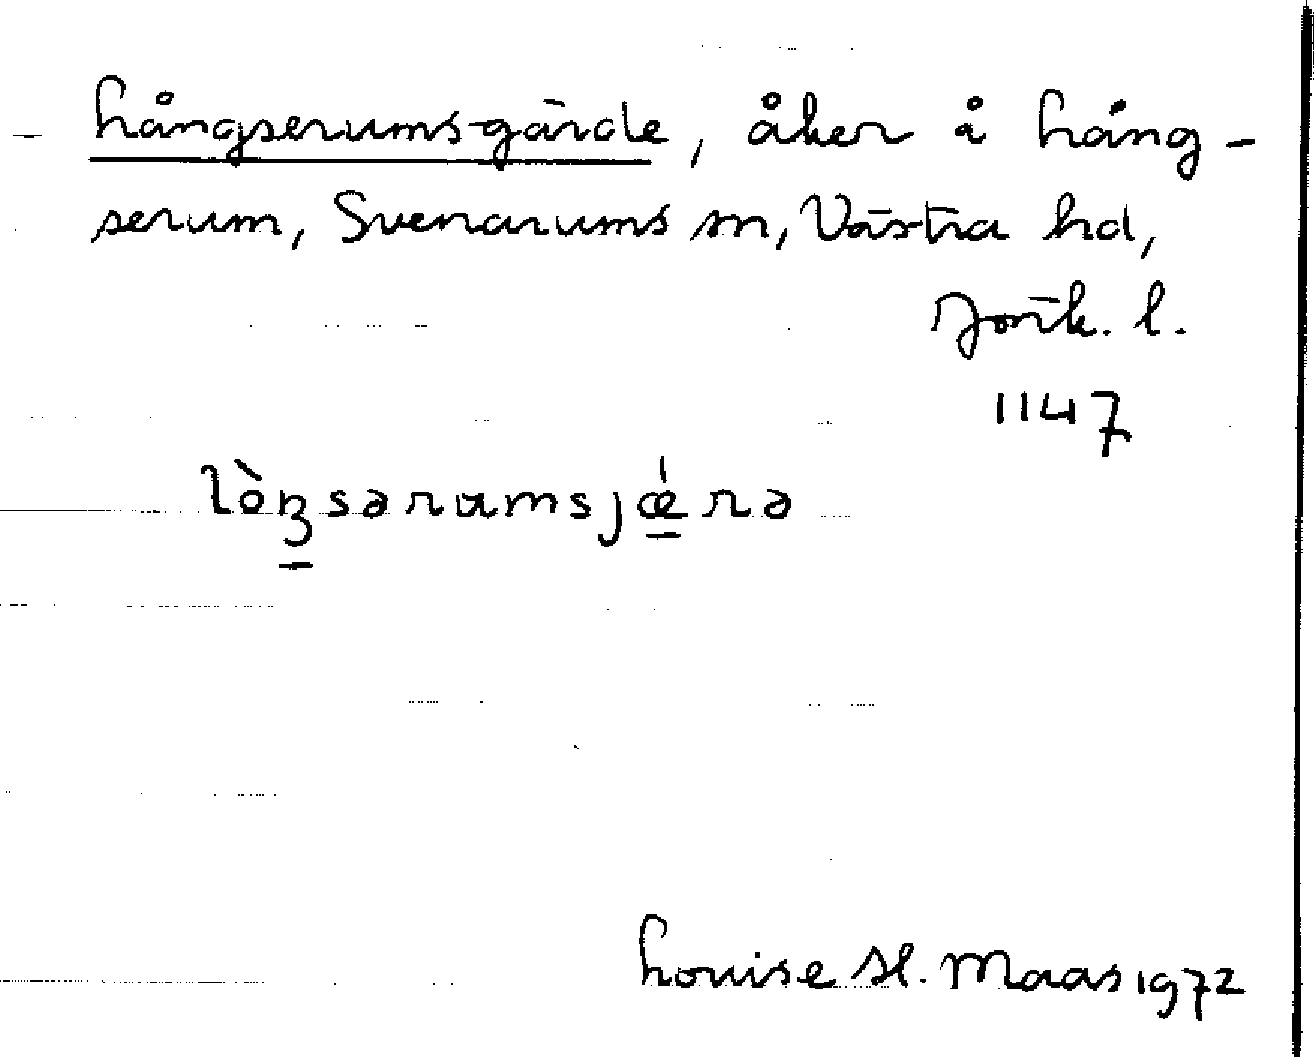 Långserums-gärde, åker i Lång-
serum, Svenarums sn, Västra hd,
Jönk. l.
1147
lòŋsərumsjǽrə
Louise H. Maas 1972